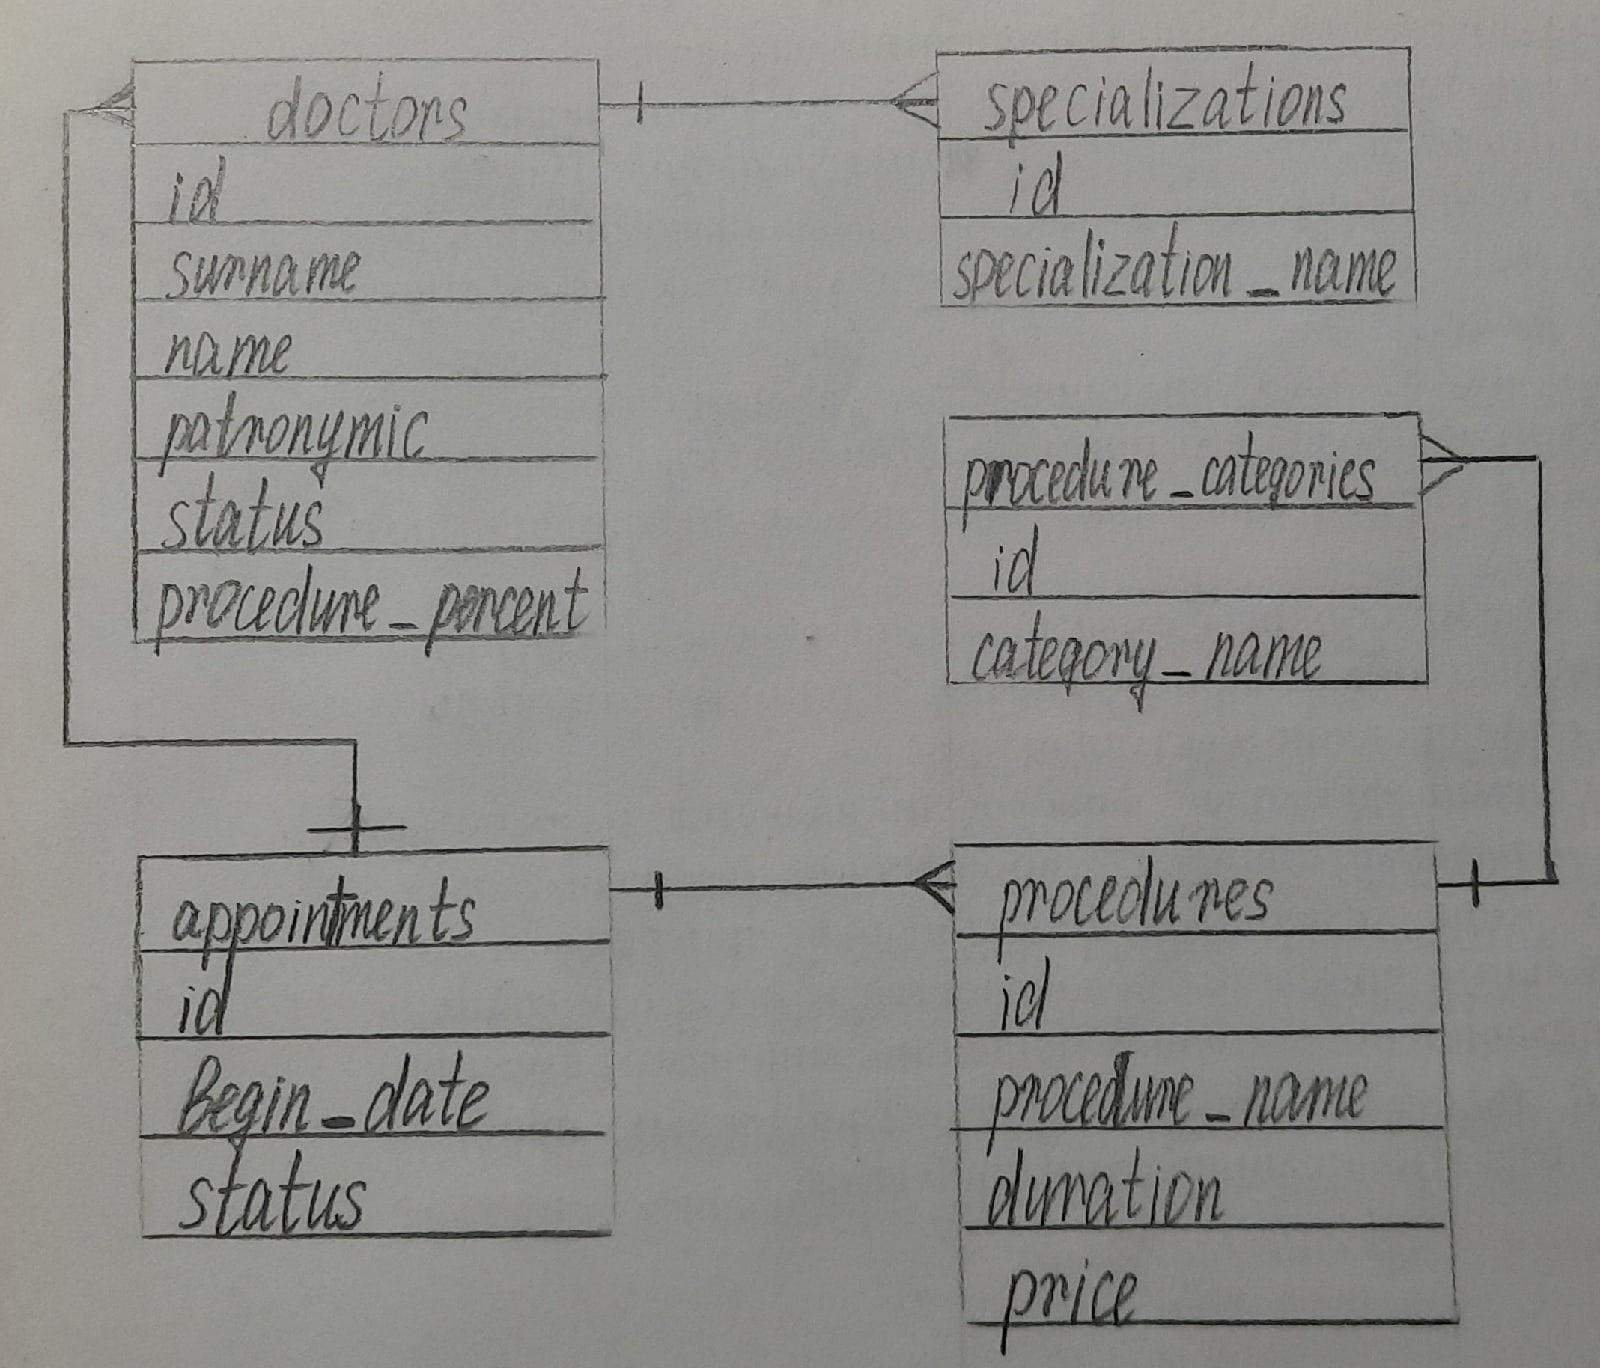 doctors
id
surname
name
patronymic
status
procedure_percent
specializations
id
specialization_name
procedure_categories
id
category_name
appointments
id
Begin_date
status
procedures
id
procedure_name
duration
price